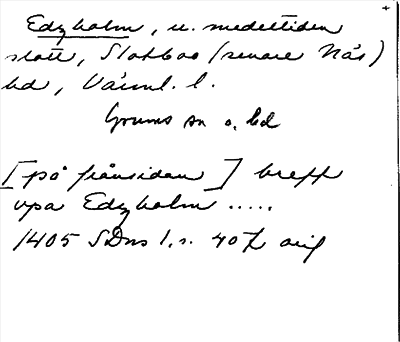 Edzholm, u. medeltiden
slott, Slobboo (senare Näs)
hd, Värml. l.
Grums sn o. hd
[på frånsidan] breff
vpa Edzholm .....
1405 SDns 1, s. 407 orig